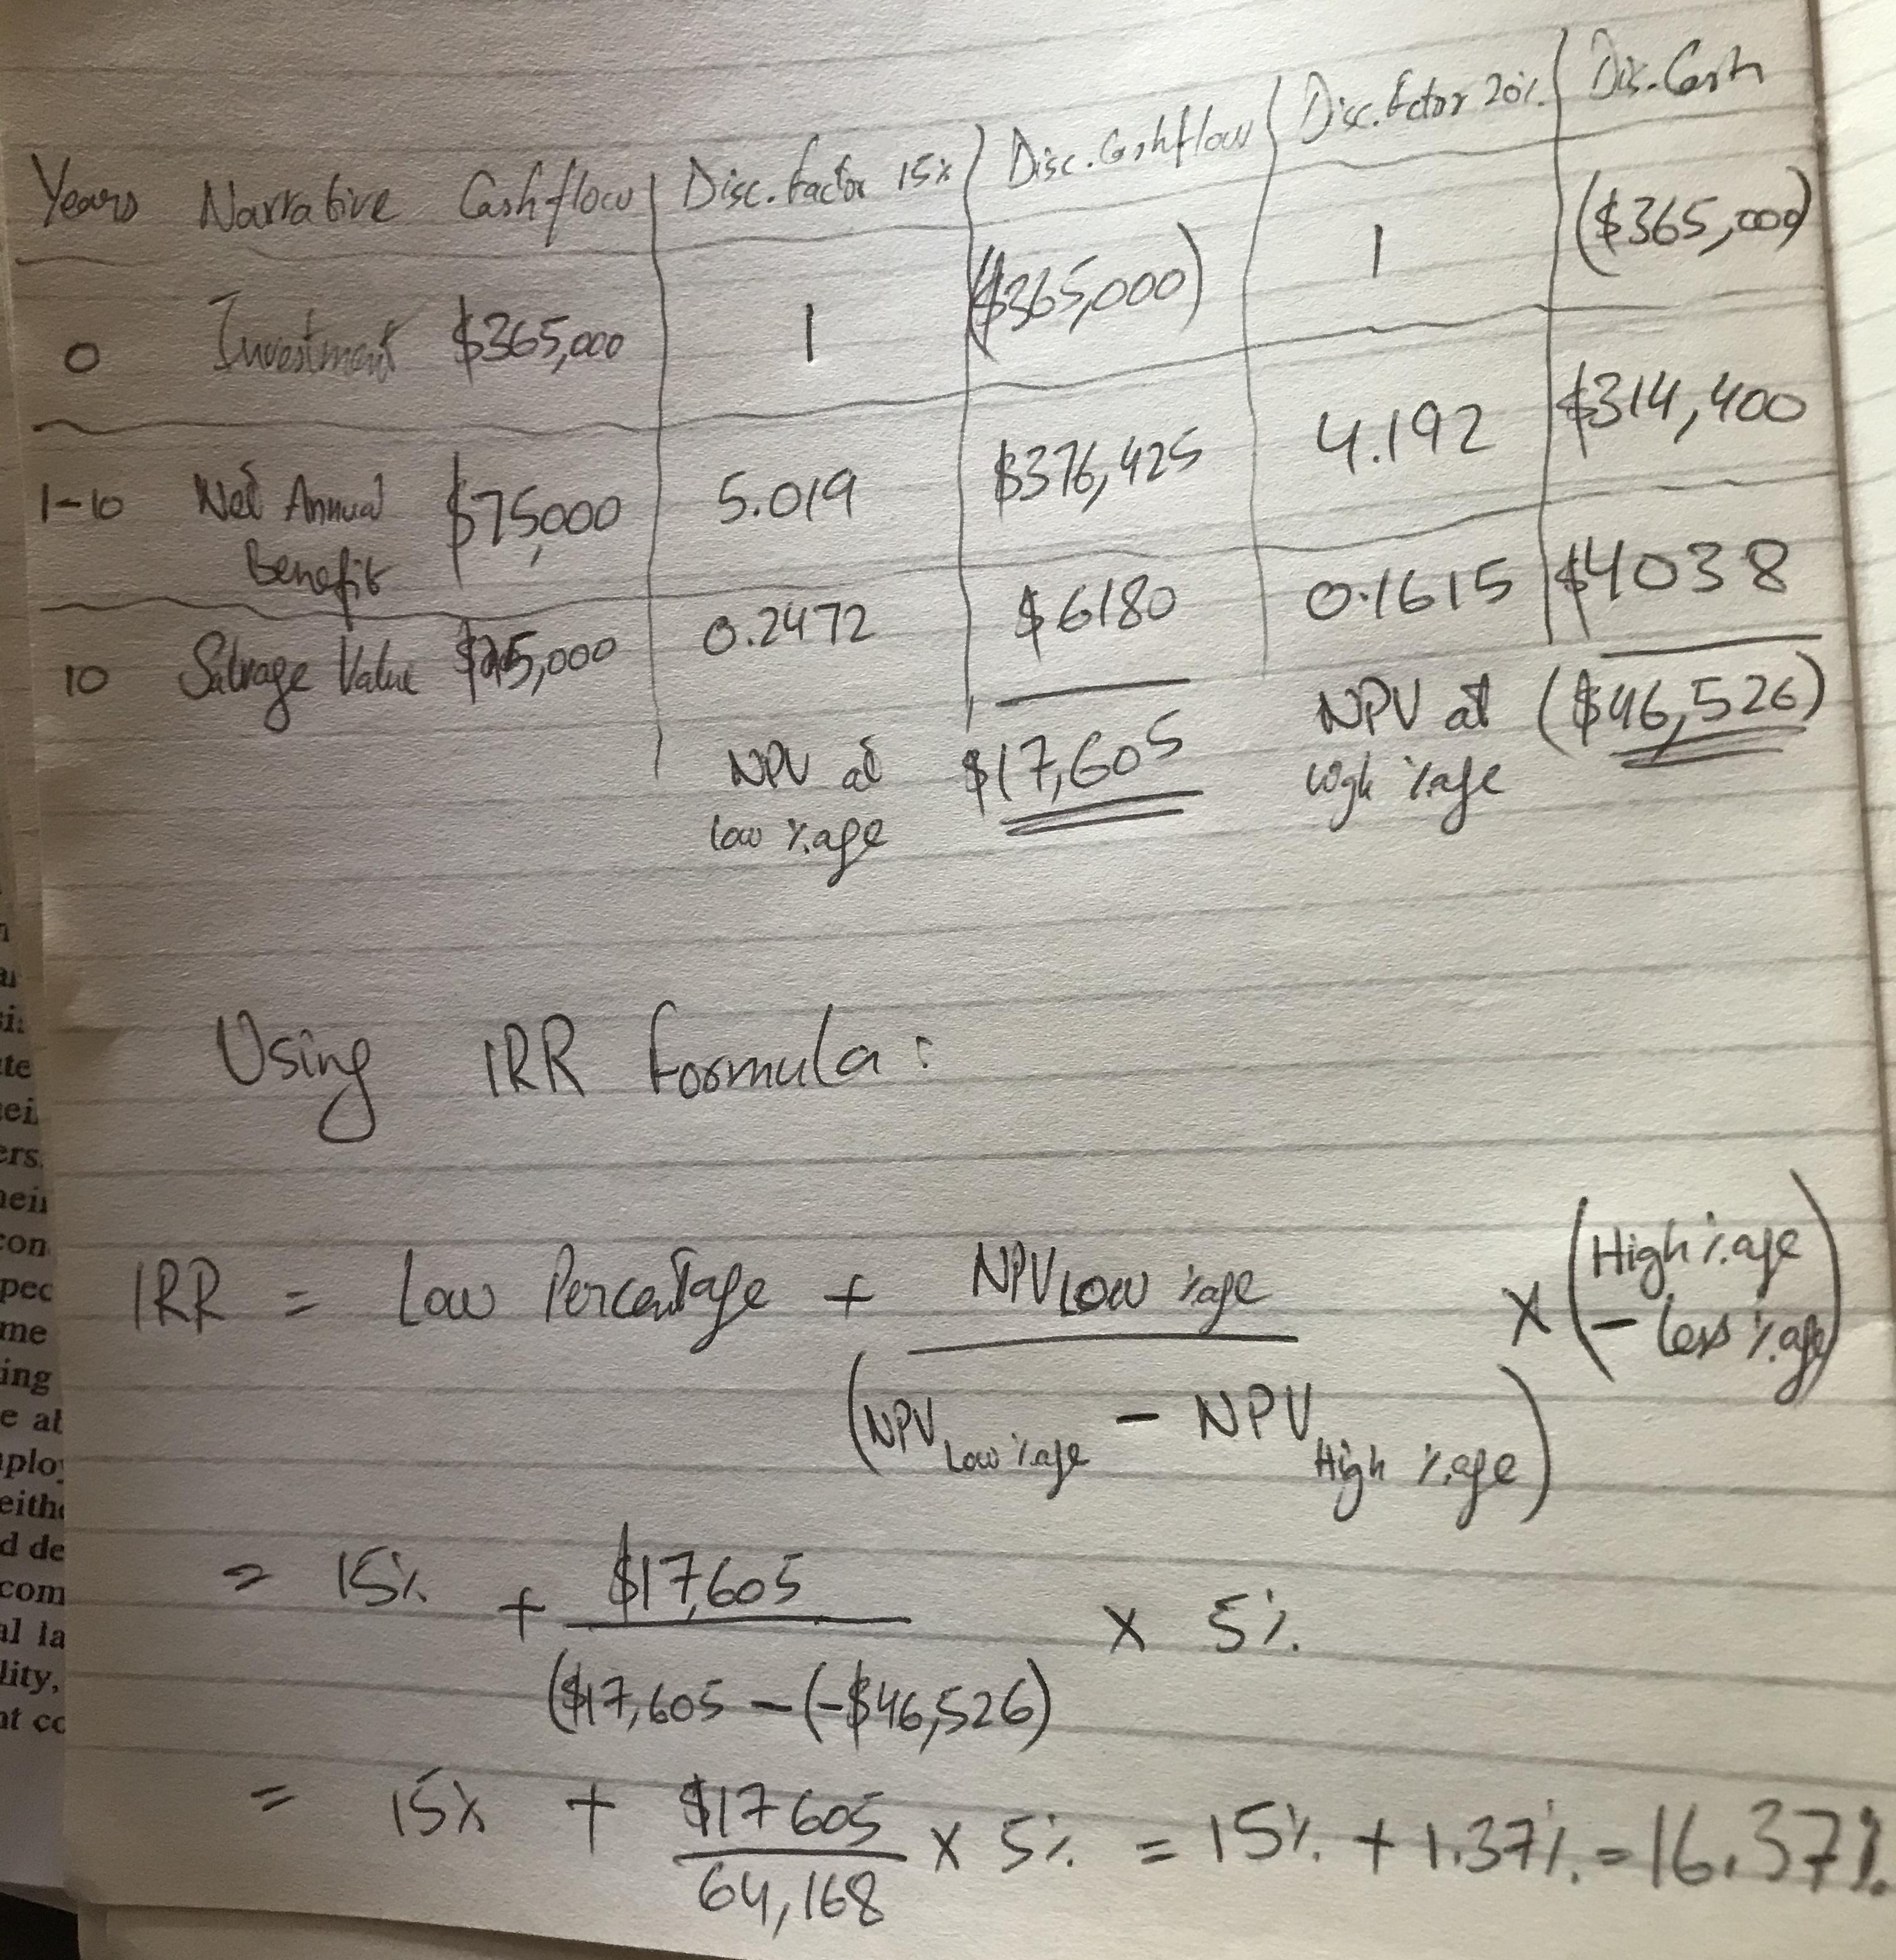 Years Narrative Cashflow Disc. factor 15% Disc. Cashflow Disc. factor 20% Dis. Cash
0 Investment $365,000 1 ($365,000) 1 ($365,000)
1-10 Net Annual Benefit $75,000 5.019 $376,425 4.192 $314,400
10 Salvage Value $25,000 0.2472 $6180 0.1615 $4038
NPV at low %age $17,605 NPV at high %age ($46,526)
Using IRR Formula:
IRR = Low Percentage + NPV Low %age / (NPV Low %age - NPV High %age) × (High %age - Less %age)
= 15% + $17,605 / ($17,605 - (-$46,526) × 5%
= 15% + $17605 / 64,168 × 5% = 15% + 1.37% = 16.37%
ei
ers.
con
pec
me
ing
e at
eith
d de
com
al la
lity,